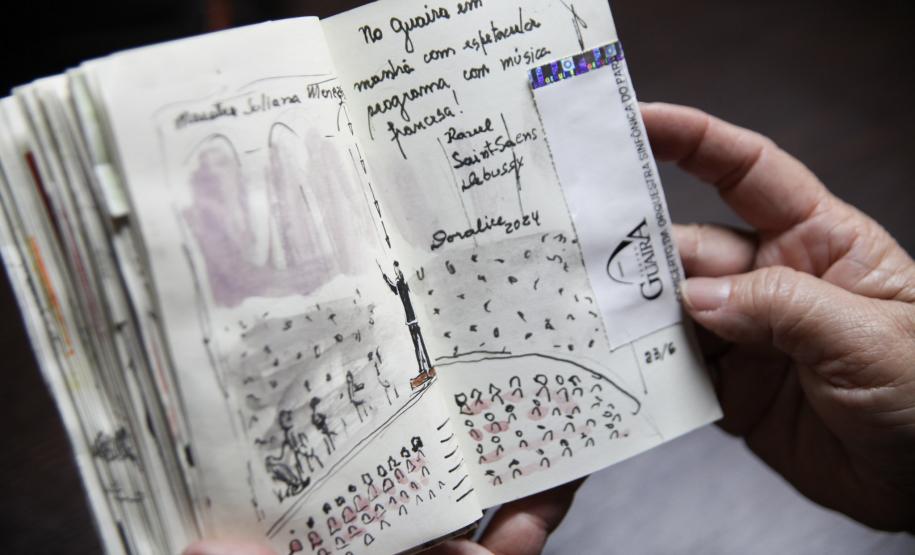 Maestra Soliana Menez
No Guaira em
manhã com espetacular
programa, com música
francesa!
Ravel
Saint-Saens
Debussy
Doralice 2024
GUAÍRA
CONCERTO DA ORQUESTRA SINFÔNICA DO PAR
23/6